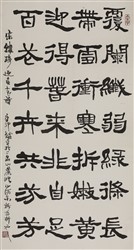 覆闌纖弱綠條長
帶雪衝寒折嫩黃
迎得春來非自足
百花千卉共芬芳
宋韓琦詩迎春